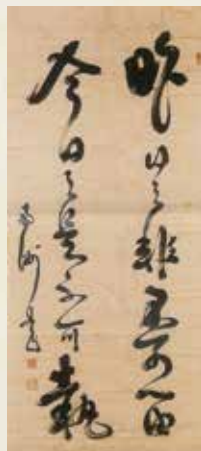 昨日之非不可留
今日之是不可執